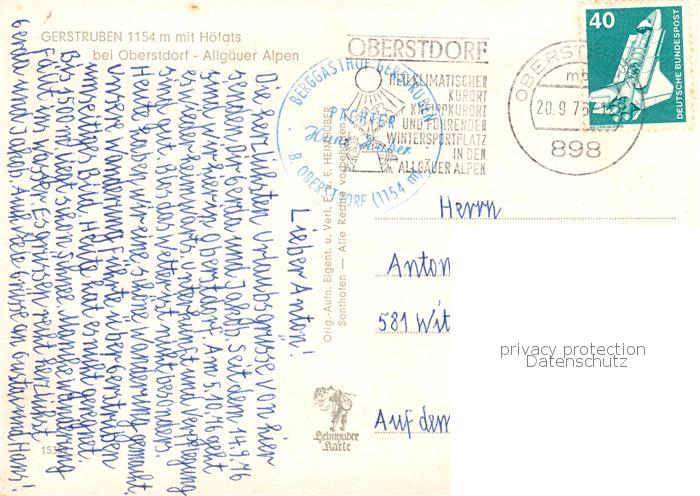 GERSTRUBEN 1154 m mit Höfats
bei Oberstdorf - Allgäuer Alpen
OBERSTDORF
HEILKLIMATISCHER
KURORT
KNEIPPKURORT
UND FÜHRENDER
WINTERSPORTPLATZ
IN DEN
ALLGÄUER ALPEN
BERGGASTHOF GERSTRUBEN
PÄCHTER
Hans Huber
8. OBERSTDORF (1154 m)
OBERST
20.9.76
898
40
DEUTSCHE BUNDESPOST
Orig.-Aufn. Eigent. u. Verl. E. u. E. HEIMHUBER
Sonthofen — Alle Rechte vorbehalten
Lieber Anton!
Die herzlichsten Urlaubsgrüße von hier
senden Gerda und Jakob. Seit dem 14.9.76
sind wir hier in Oberstdorf. Am 5.10.76 geht
es wieder heimwärts. Unterkunft und Verpflegung
sehr gut, das Wetter ist veränderlich.
Heute haben wir eine schöne Wanderung gemacht.
Unsere Wanderung führte über Gerstruben
umseitiges Bild. Heute hat es nicht geregnet
Bis 1500 m hat es schon Schnee. Unsere Wanderung
fällt ins Wasser. Es grüßen recht herzlichst
Gerda und Jakob. Auch viele Grüße an Gusti und Hans!
Heimhuber
Karte
Herrn
Anton
581 Wit
Auf dem
privacy protection
Datenschutz